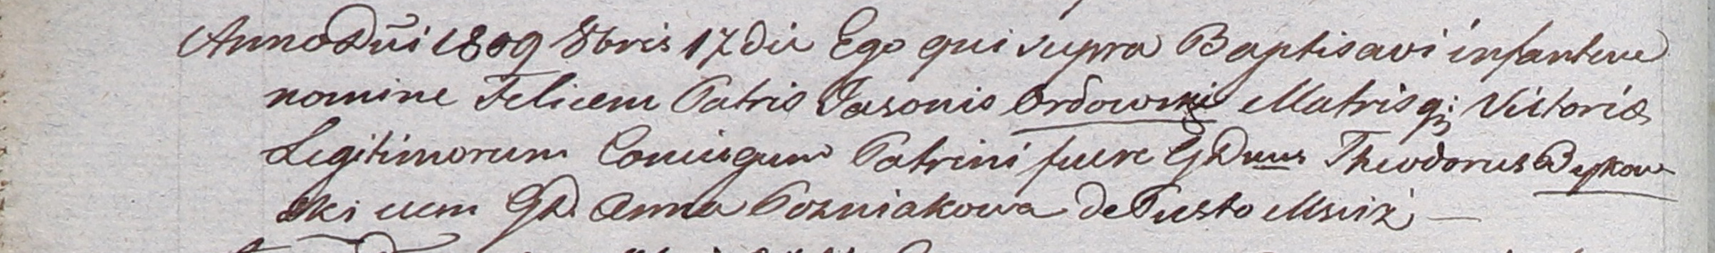 Anno Dni 1809 8bris 17 die Ego qui supra Baptisavi infantem
nomine Felicem Patris Jasonis Ordowski Matris q; Victoriæ
Legitimorum Coniugum Patrini fuere GDnus Theodorus
ski cum GD Anna Pozniakowa de Pusto Msciż